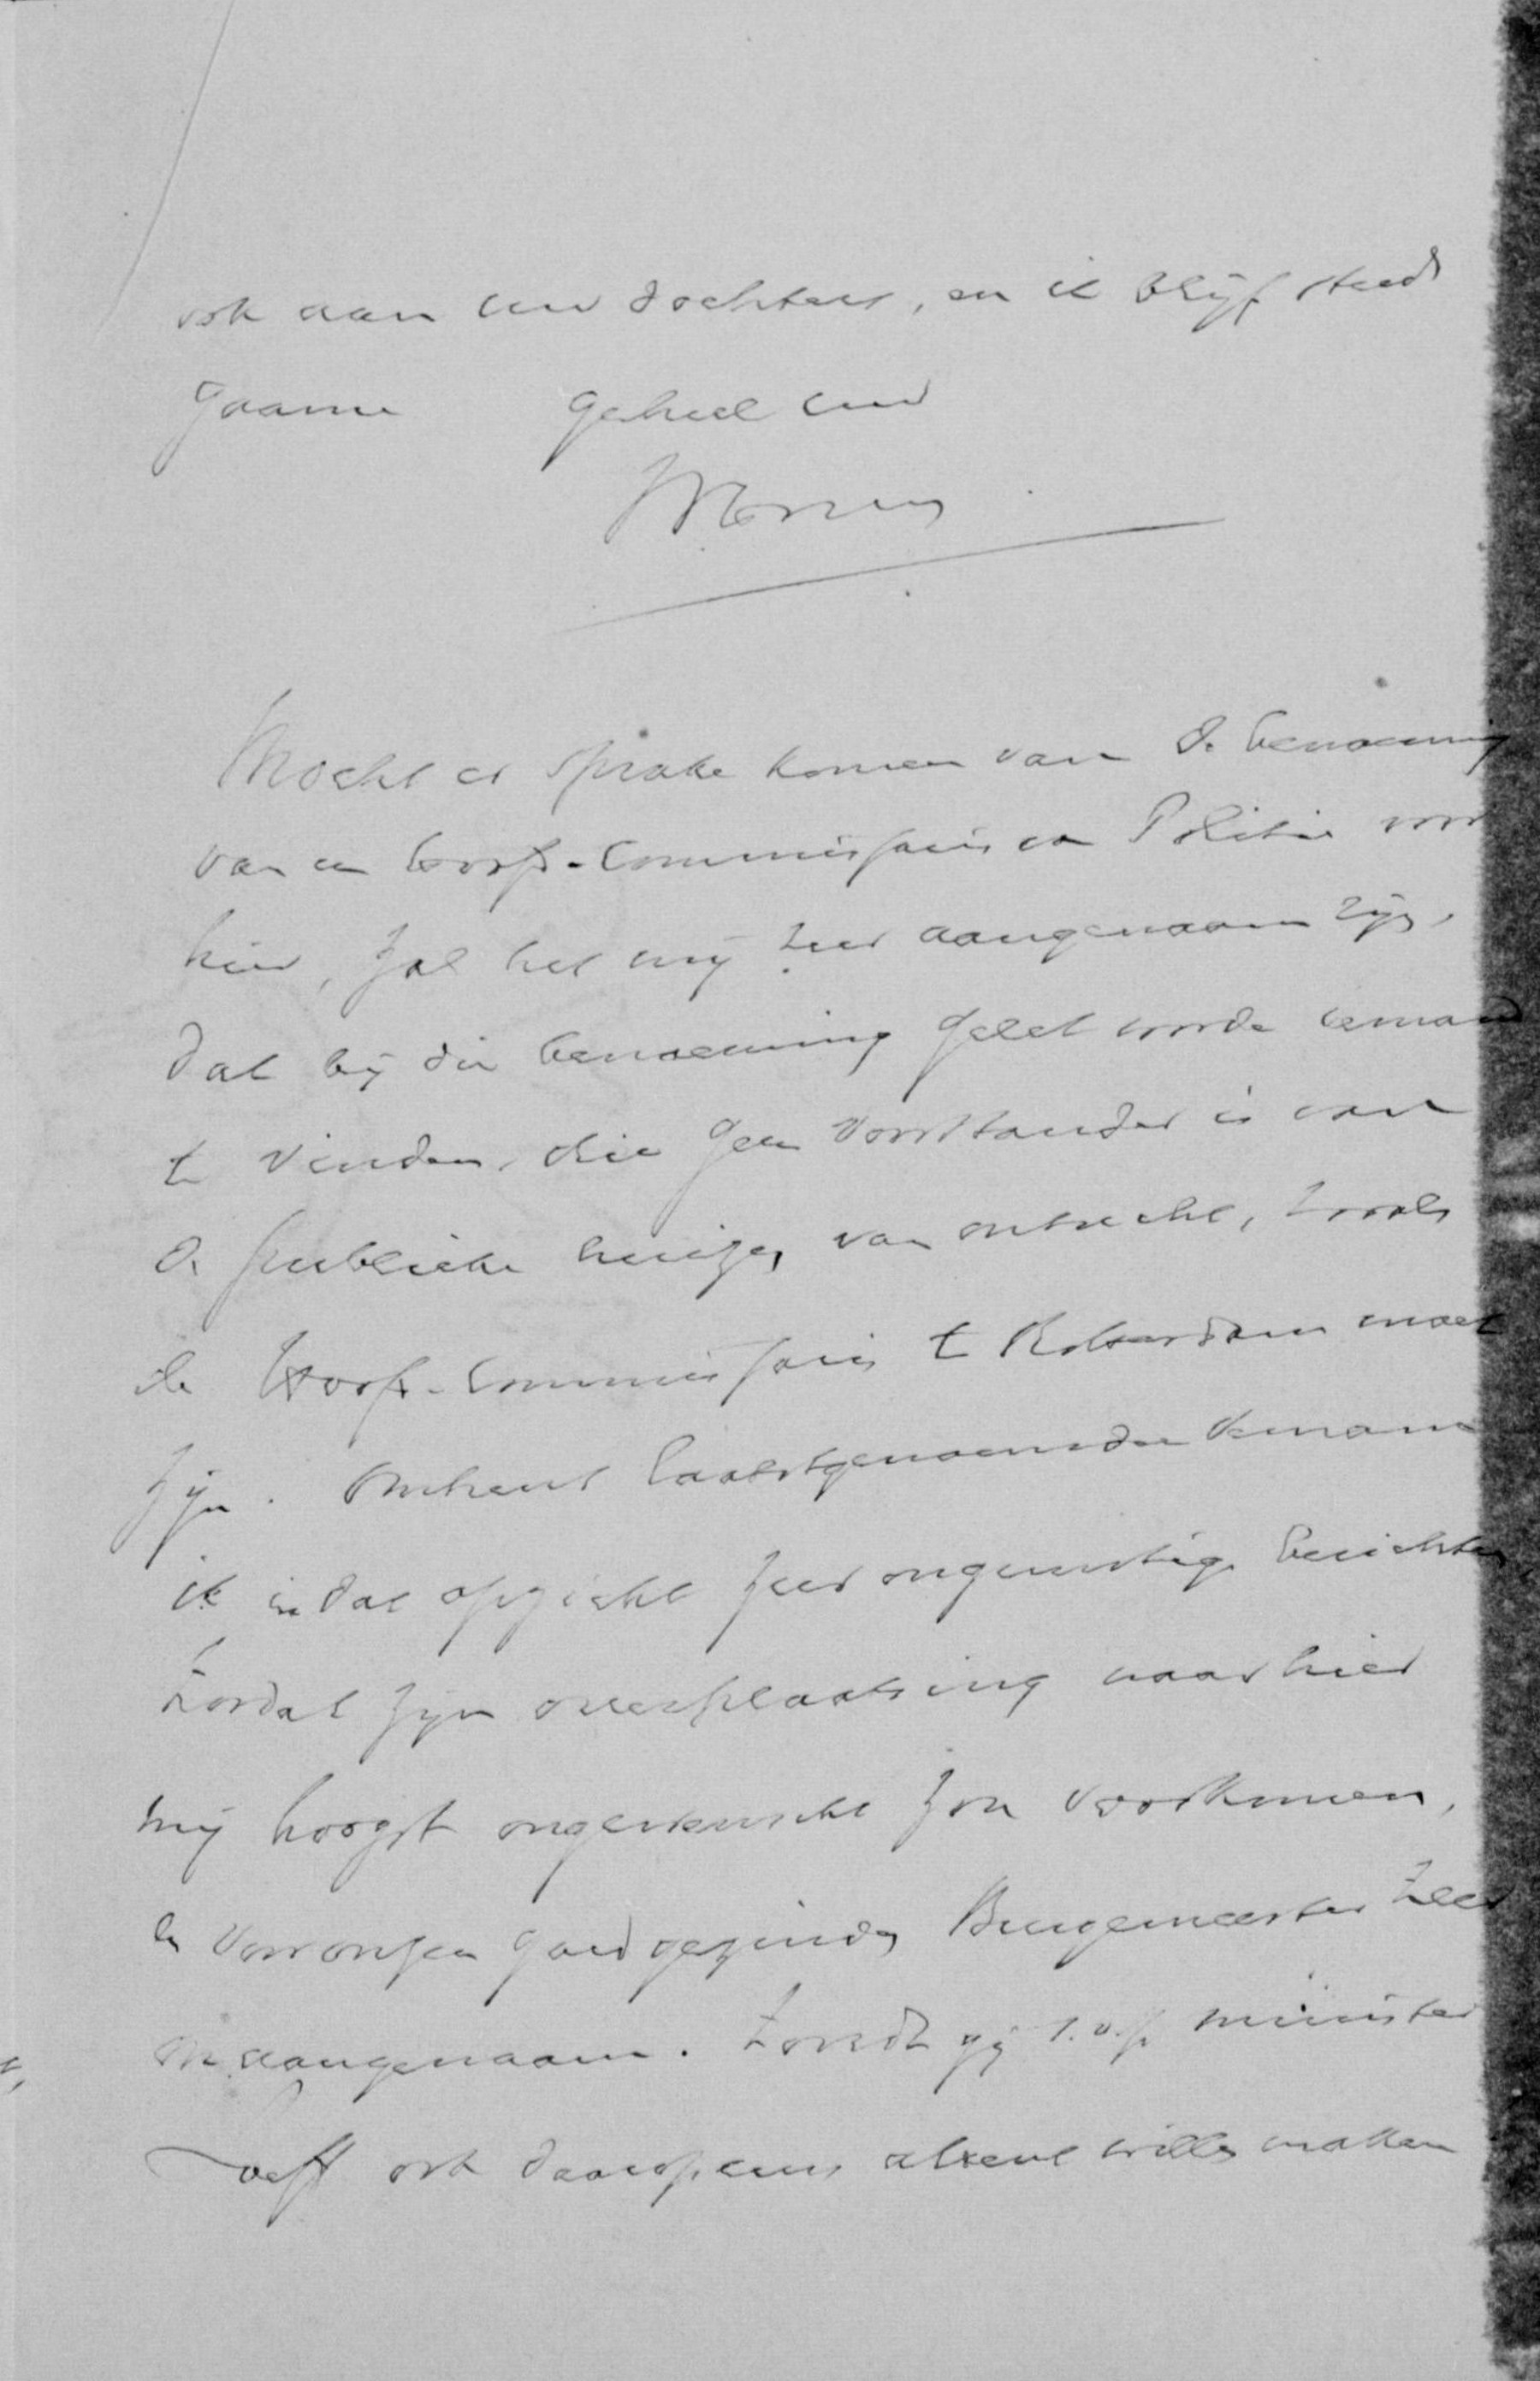 ook aan uw dochters, en ik blijf steeds
gaarne geheel uw
Mocht er sprake komen van de benoeming
van een Hoofd-Commissaris van Politie voor
hier, zal het mij zeer aangenaam zijn,
dat bij die benoeming gelet worde iemand
te vinden, die geen voorstander is van
de publieke huizen van ontucht, zooals
de Hoofd-Commissaris te Rotterdam moet
zijn. Omtrent laatstgenoemden vernam
ik in dat opzicht zeer ongunstige berichten
zoodat zijn overplaatsing naar hier
mij hoogst ongewenscht zou voorkomen,
en voor onzen goedgezinden Burgemeester zeer
onaangenaam. Zoudt gij s.v.p. minister
Loeff ook daarop eens attent willen maken